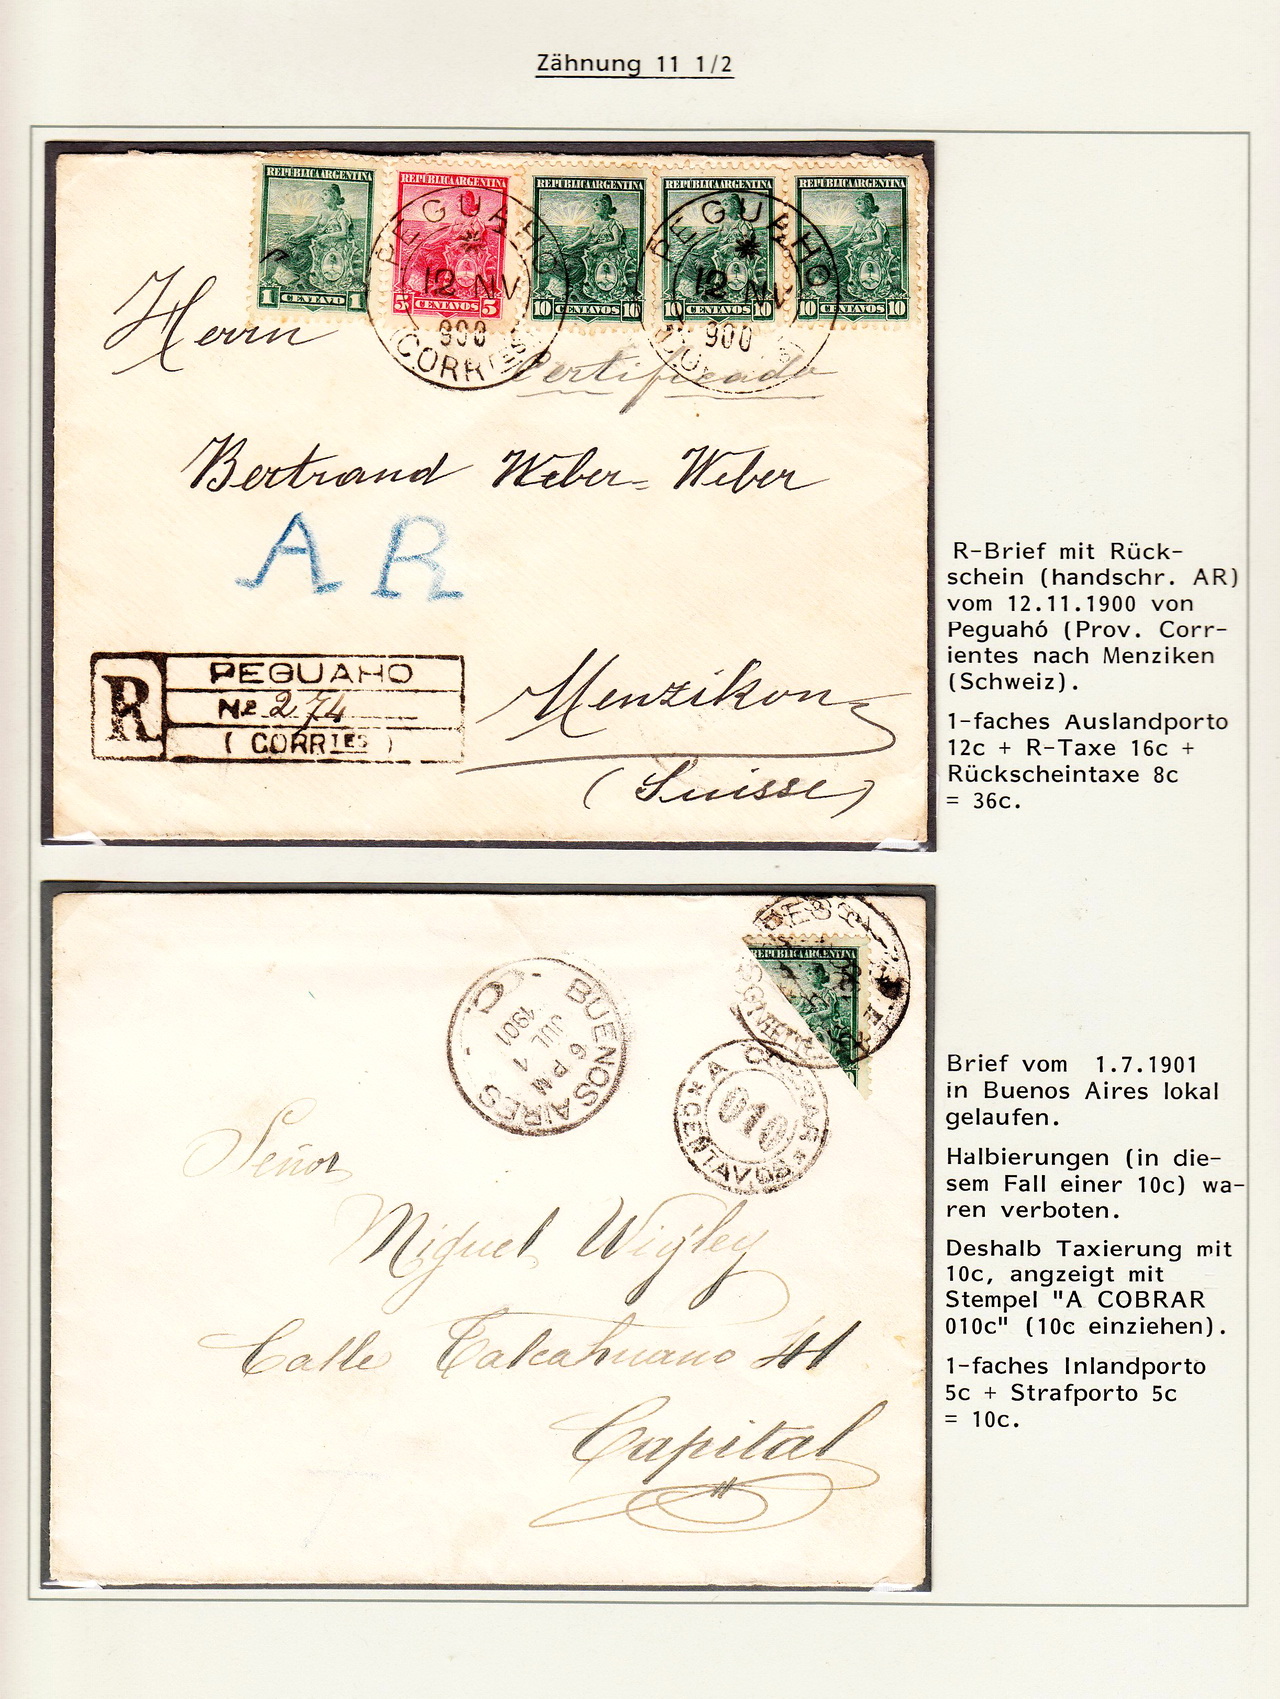 Zähnung 11 1/2
REPUBLICA ARGENTINA
1 CENTAVO 1
REPUBLICA ARGENTINA
5 CENTAVOS 5
REPUBLICA ARGENTINA
10 CENTAVOS 10
REPUBLICA ARGENTINA
10 CENTAVOS 10
REPUBLICA ARGENTINA
10 CENTAVOS 10
PEGUAHO
12 NV
900
(CORRIES)
PEGUAHO
12 NV
900
Herrn
Certificado
Bertrand Weber-Weber
AR
R
PEGUAHO
No 274
(CORRIES)
Menzikon
(Suisse)
R-Brief mit Rück-
schein (handschr. AR)
vom 12.11.1900 von
Peguahó (Prov. Corr-
ientes nach Menziken
(Schweiz).
1-faches Auslandporto
12c + R-Taxe 16c +
Rückscheintaxe 8c
= 36c.
REPUBLICA ARGENTINA
BUENOS AIRES
6 PM
JUL 1
1901
A COBRAR
010
CENTAVOS
Señor
Miguel Wigley
Calle Talcahuano 41
Capital
Brief vom 1.7.1901
in Buenos Aires lokal
gelaufen.
Halbierungen (in die-
sem Fall einer 10c) wa-
ren verboten.
Deshalb Taxierung mit
10c, angzeigt mit
Stempel "A COBRAR
010c" (10c einziehen).
1-faches Inlandporto
5c + Strafporto 5c
= 10c.